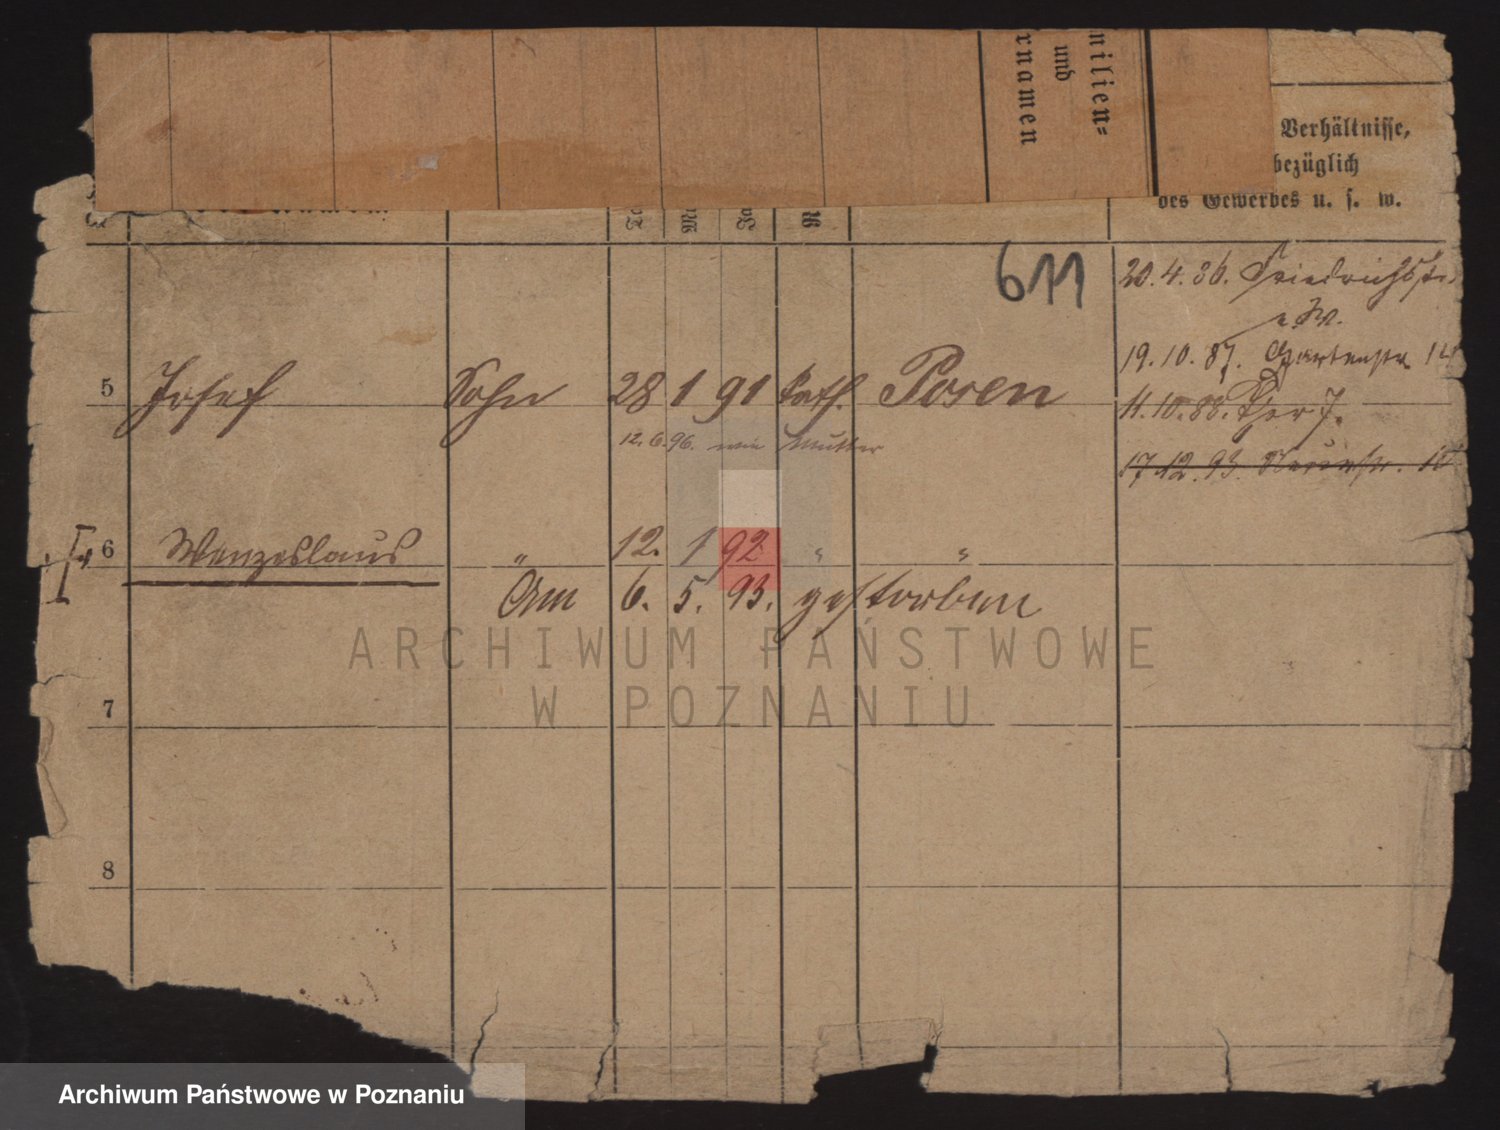 milien=
und
rnamen
Verhältnisse,
bezüglich
des Gewerbes u. s. w.
611
20.4.86. Friedrichstr.
19.10.87. Gartenstr. 14
11.10.88.
17.12.93.
5 Josef Sohn 28 1 91 kath. Posen
12.6.96. wie Mutter
6 Wenzeslaus " 12. 1 92 " "
Am 6. 5. 93. gestorben
7
8
ARCHIWUM PAŃSTWOWE
W POZNANIU
Archiwum Państwowe w Poznaniu